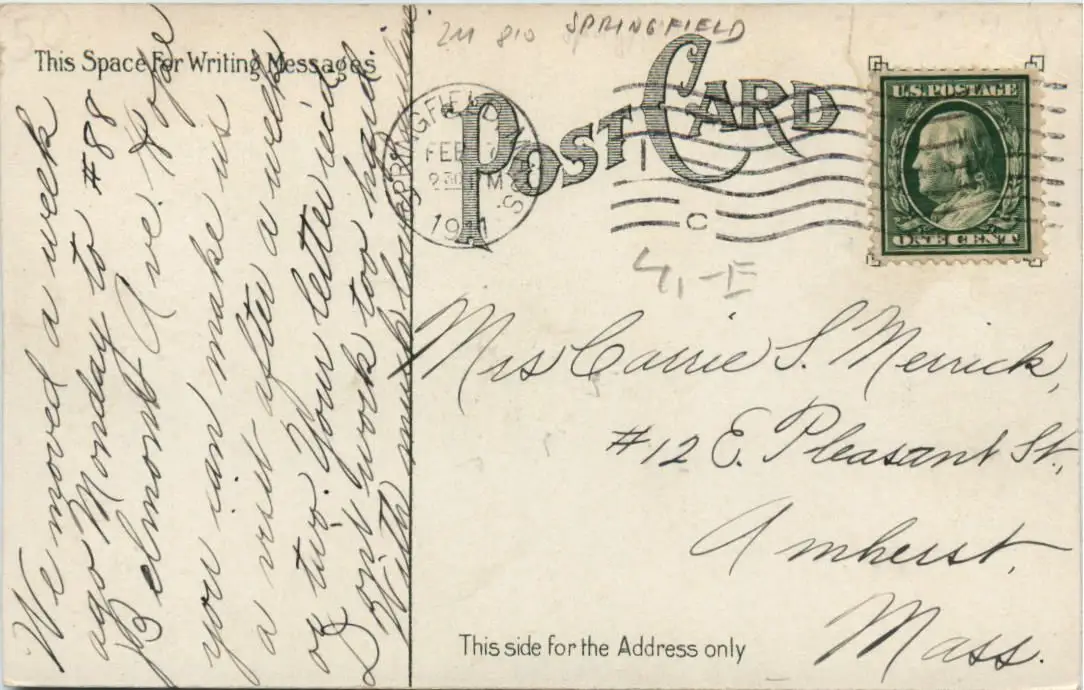 2M 810 SPRINGFIELD
This Space For Writing Messages
POST CARD
SPRINGFIELD, MASS.
FEB
930 M
1911
1
C
U.S. POSTAGE
ONE CENT
We moved a week
ago Monday to #88
Belmont Ave. Hope
you can make us
a visit after a week
or two. Your letter rec'd
Don't work too hard
With much love
Mrs Carrie S. Merrick,
#12 E. Pleasant St.,
Amherst,
Mass.
This side for the Address only